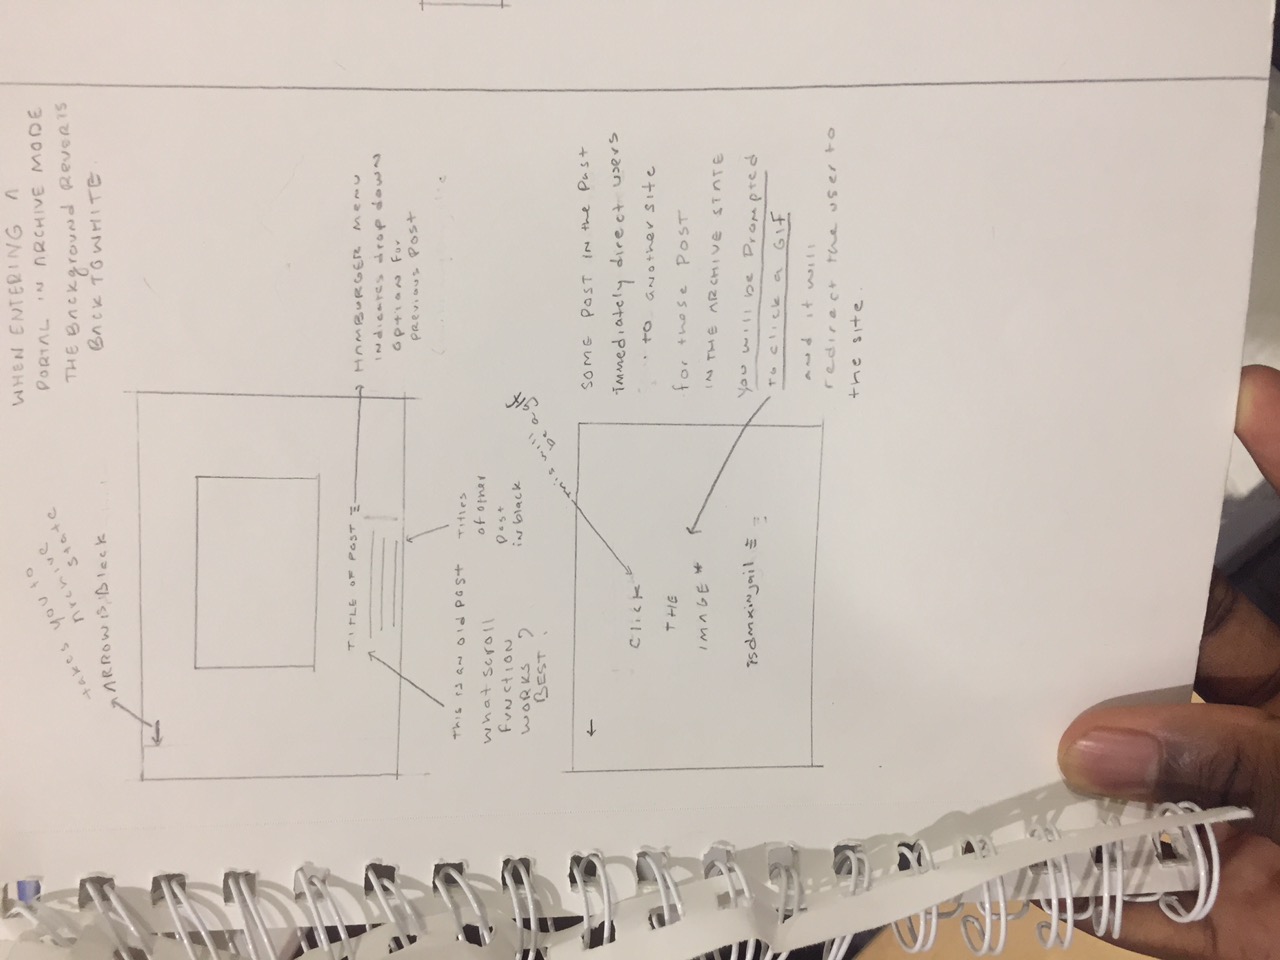 WHEN ENTERING A
PORTAL IN ARCHIVE MODE
THE BackgrounD ReverTS
BACK TO WHITE.
takes you to
Archive
State
ARROW is Black
TITLE OF POST
HAMBURGER menu
indicates drop down
option for
previous post
This is an old post
what scroll
function
WORKS
BEST?
Titles
of other
post
in black
This will
be a gif
←
Click
THE
IMAGE *
isdmxinjail
SOME POST IN the Past
immediately direct users
to another site
for those POST
IN THE ARCHIVE STATE
You will be Prompted
to click a GIF
and it will
redirect the user to
the site.